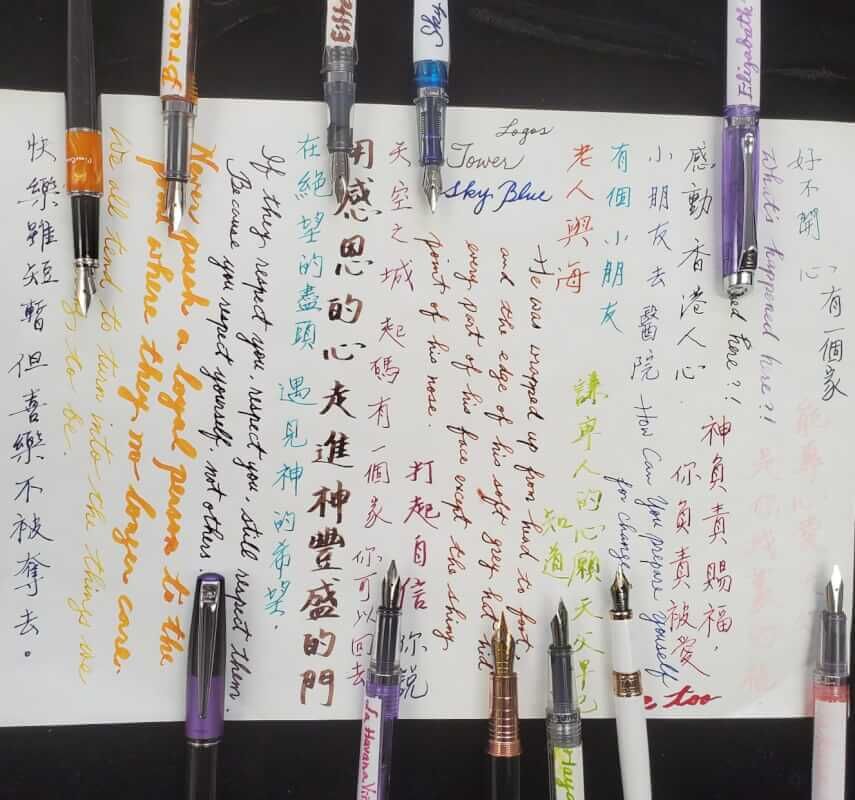 Bruce
Eiffe
Sky
Elizabeth
有一個家
好不開心
What's happened here?!
here?!
神負責賜福，
你負責被愛
感動香港人心.
小朋友去醫院
How Can You prepare yourself
for change
too
有個小朋友
老人與海
謙卑人的心願 天父早已
知道
Logos
Tower
Sky Blue
He was wrapped up from head to foot,
and the edge of his soft grey hat hid
every part of his face except the shiny
point of his nose.
打起自信 你說
天空之城 起碼有一個家 你可以回去
用感恩的心走進神豐盛的門
在絕望的盡頭 遇見神的希望.
If they respect you, respect you, still respect them.
Because you respect yourself, not others.
Never push a loyal person to the
point where they no longer care.
We all tend to turn into the things we
to be.
快樂雖短暫 但喜樂不被奪去。
La Havana Vi
Haya